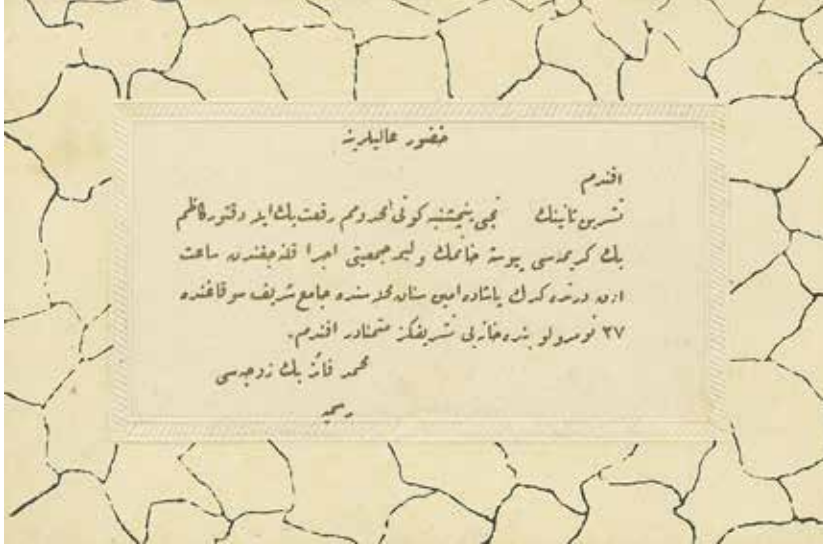 حضور عاليلرينه
افندم
تشرين ثانينك نجى پنجشنبه كونى مخدومم رفعت بك ايله دوقتور كاظم
بك كريمه‌سى پيوسته خانمك وليمه جمعيتى اجرا قلنه‌جغندن ساعت
اون درتده كدك پاشاده امين سنان محله‌سنده جامع شريف سوقاغنده
٢٧ نومرولو بنده‌خانه‌يى تشريفكز متمنادر افندم.
محمد فائز بك زوجه‌سى